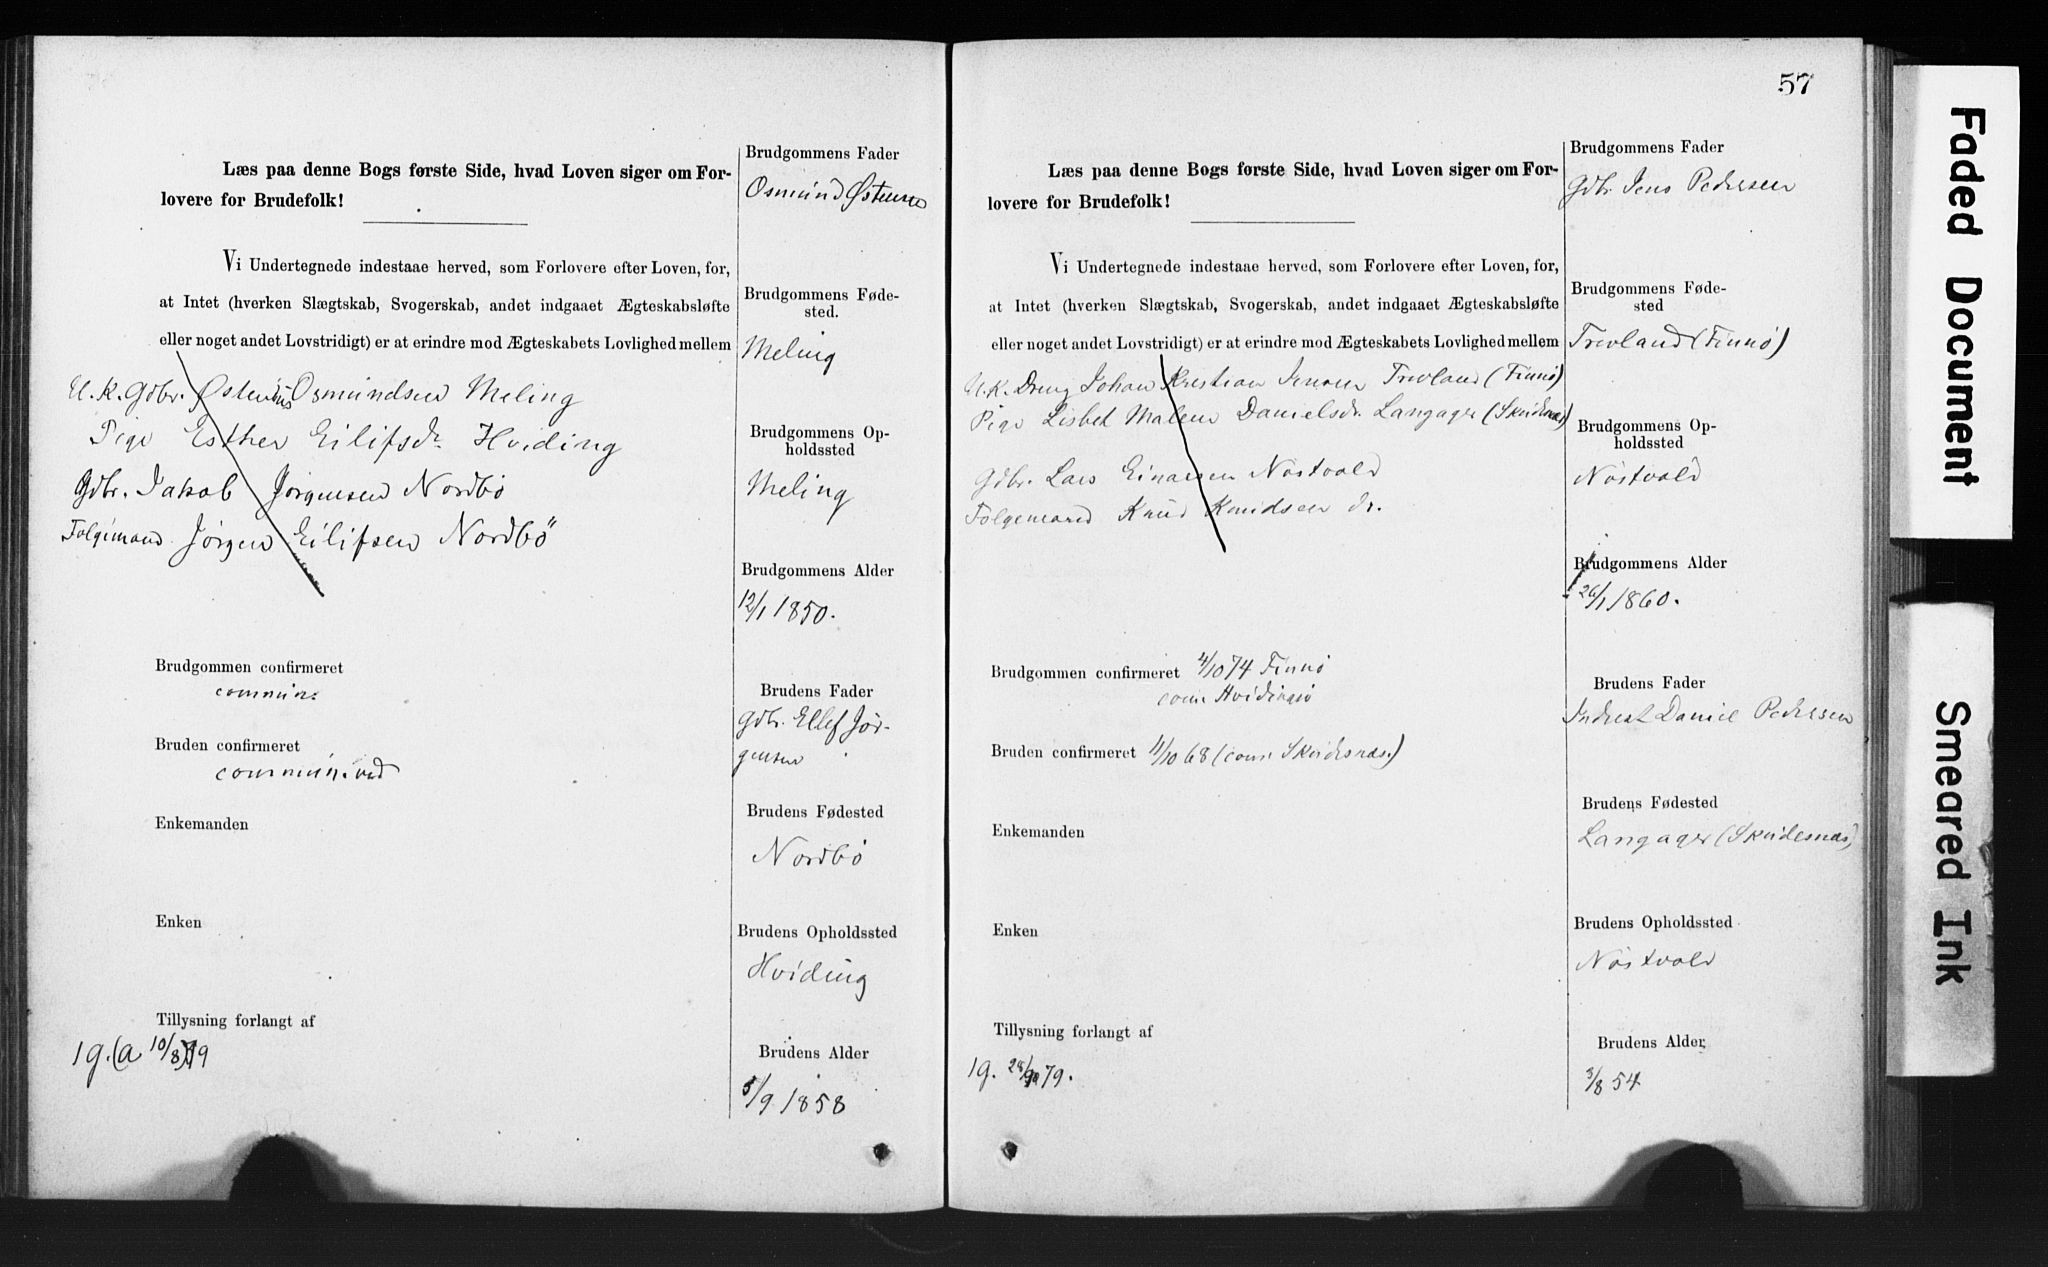 Læs paa denne Bogs første Side, hvad Loven siger om For-
lovere for Brudefolk!
Vi Undertegnede indestaae herved, som Forlovere efter Loven, for,
at Intet (hverken Slægtskab, Svogerskab, andet indgaaet Ægteskabsløfte
eller noget andet Lovstridigt) er at erindre mod Ægteskabets Lovlighed mellem
U.K. Gdbr. Østensius Osmundsen Meling
Pige Esther Eilifsdr. Hviding
Gdbr. Jakob Jørgensen Nordbö
Følgemand Jörgen Eilifsen Nordbö
Brudgommen confirmeret
commun.
Bruden confirmeret
commun. ved
Enkemanden
Enken
Tillysning forlangt af
1g. (a 10/8) 79
Brudgommens Fader
Osmund Østensen
Brudgommens Føde-
sted.
Meling
Brudgommens Op-
holdssted
Meling
Brudgommens Alder
12/1 1850.
Brudens Fader
Gdbr. Ellef Jör-
gensen
Brudens Fødested
Nordbö
Brudens Opholdssted
Hviding
Brudens Alder
5/9 1858
57
Læs paa denne Bogs første Side, hvad Loven siger om For-
lovere for Brudefolk!
Vi Undertegnede indestaae herved, som Forlovere efter Loven, for,
at Intet (hverken Slægtskab, Svogerskab, andet indgaaet Ægteskabsløfte
eller noget andet Lovstridigt) er at erindre mod Ægteskabets Lovlighed mellem
U.K. Dreng Johan Kristian Jensen Trevland (Finnö)
Pige Lisbet Malene Danielsdr. Langager (Skudesnæs)
Gdbr. Lars Einarsen Nöstvold
Følgemand Knud Knudsen dr.
Brudgommen confirmeret 4/10 74 Finnö
com. Hvidingsö
Bruden confirmeret 11/10 68 (com. Skudesnæs.)
Enkemanden
Enken
Tillysning forlangt af
1g. 79.
Brudgommens Fader
Gdbr. Jens Pedersen
Brudgommens Føde-
sted
Trevland (Finnö)
Brudgommens Op-
holdssted
Nöstvold
Brudgommens Alder
26/1 1860.
Brudens Fader
Inderst Daniel Pedersen
Brudens Fødested
Langager (Skudesnæs)
Brudens Opholdssted
Nöstvold
Brudens Alder
3/8 54
Faded Document
Smeared Ink